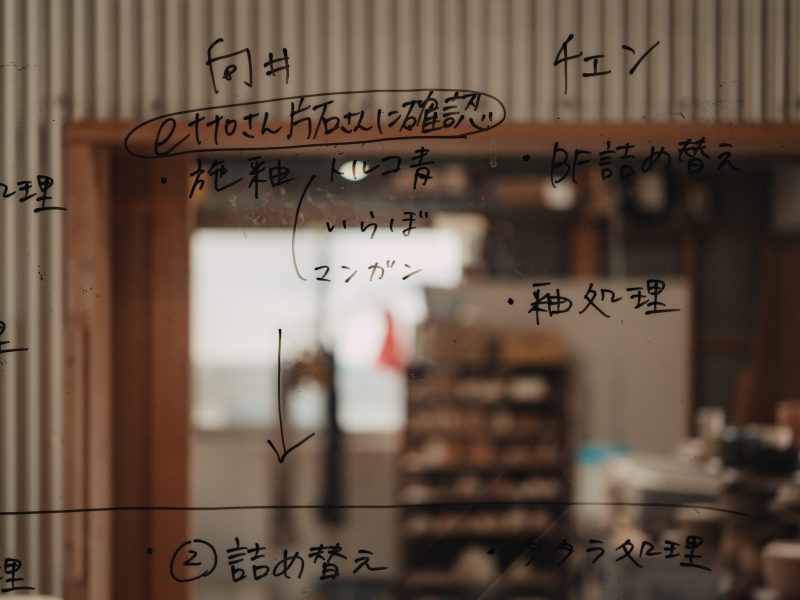 向井
チェン
ettoさん片石さんに確認
・施釉 トルコ青
・BF詰め替え
処理
いらぼ
マンガン
・釉処理
理
・②詰め替え
・タタラ処理
理